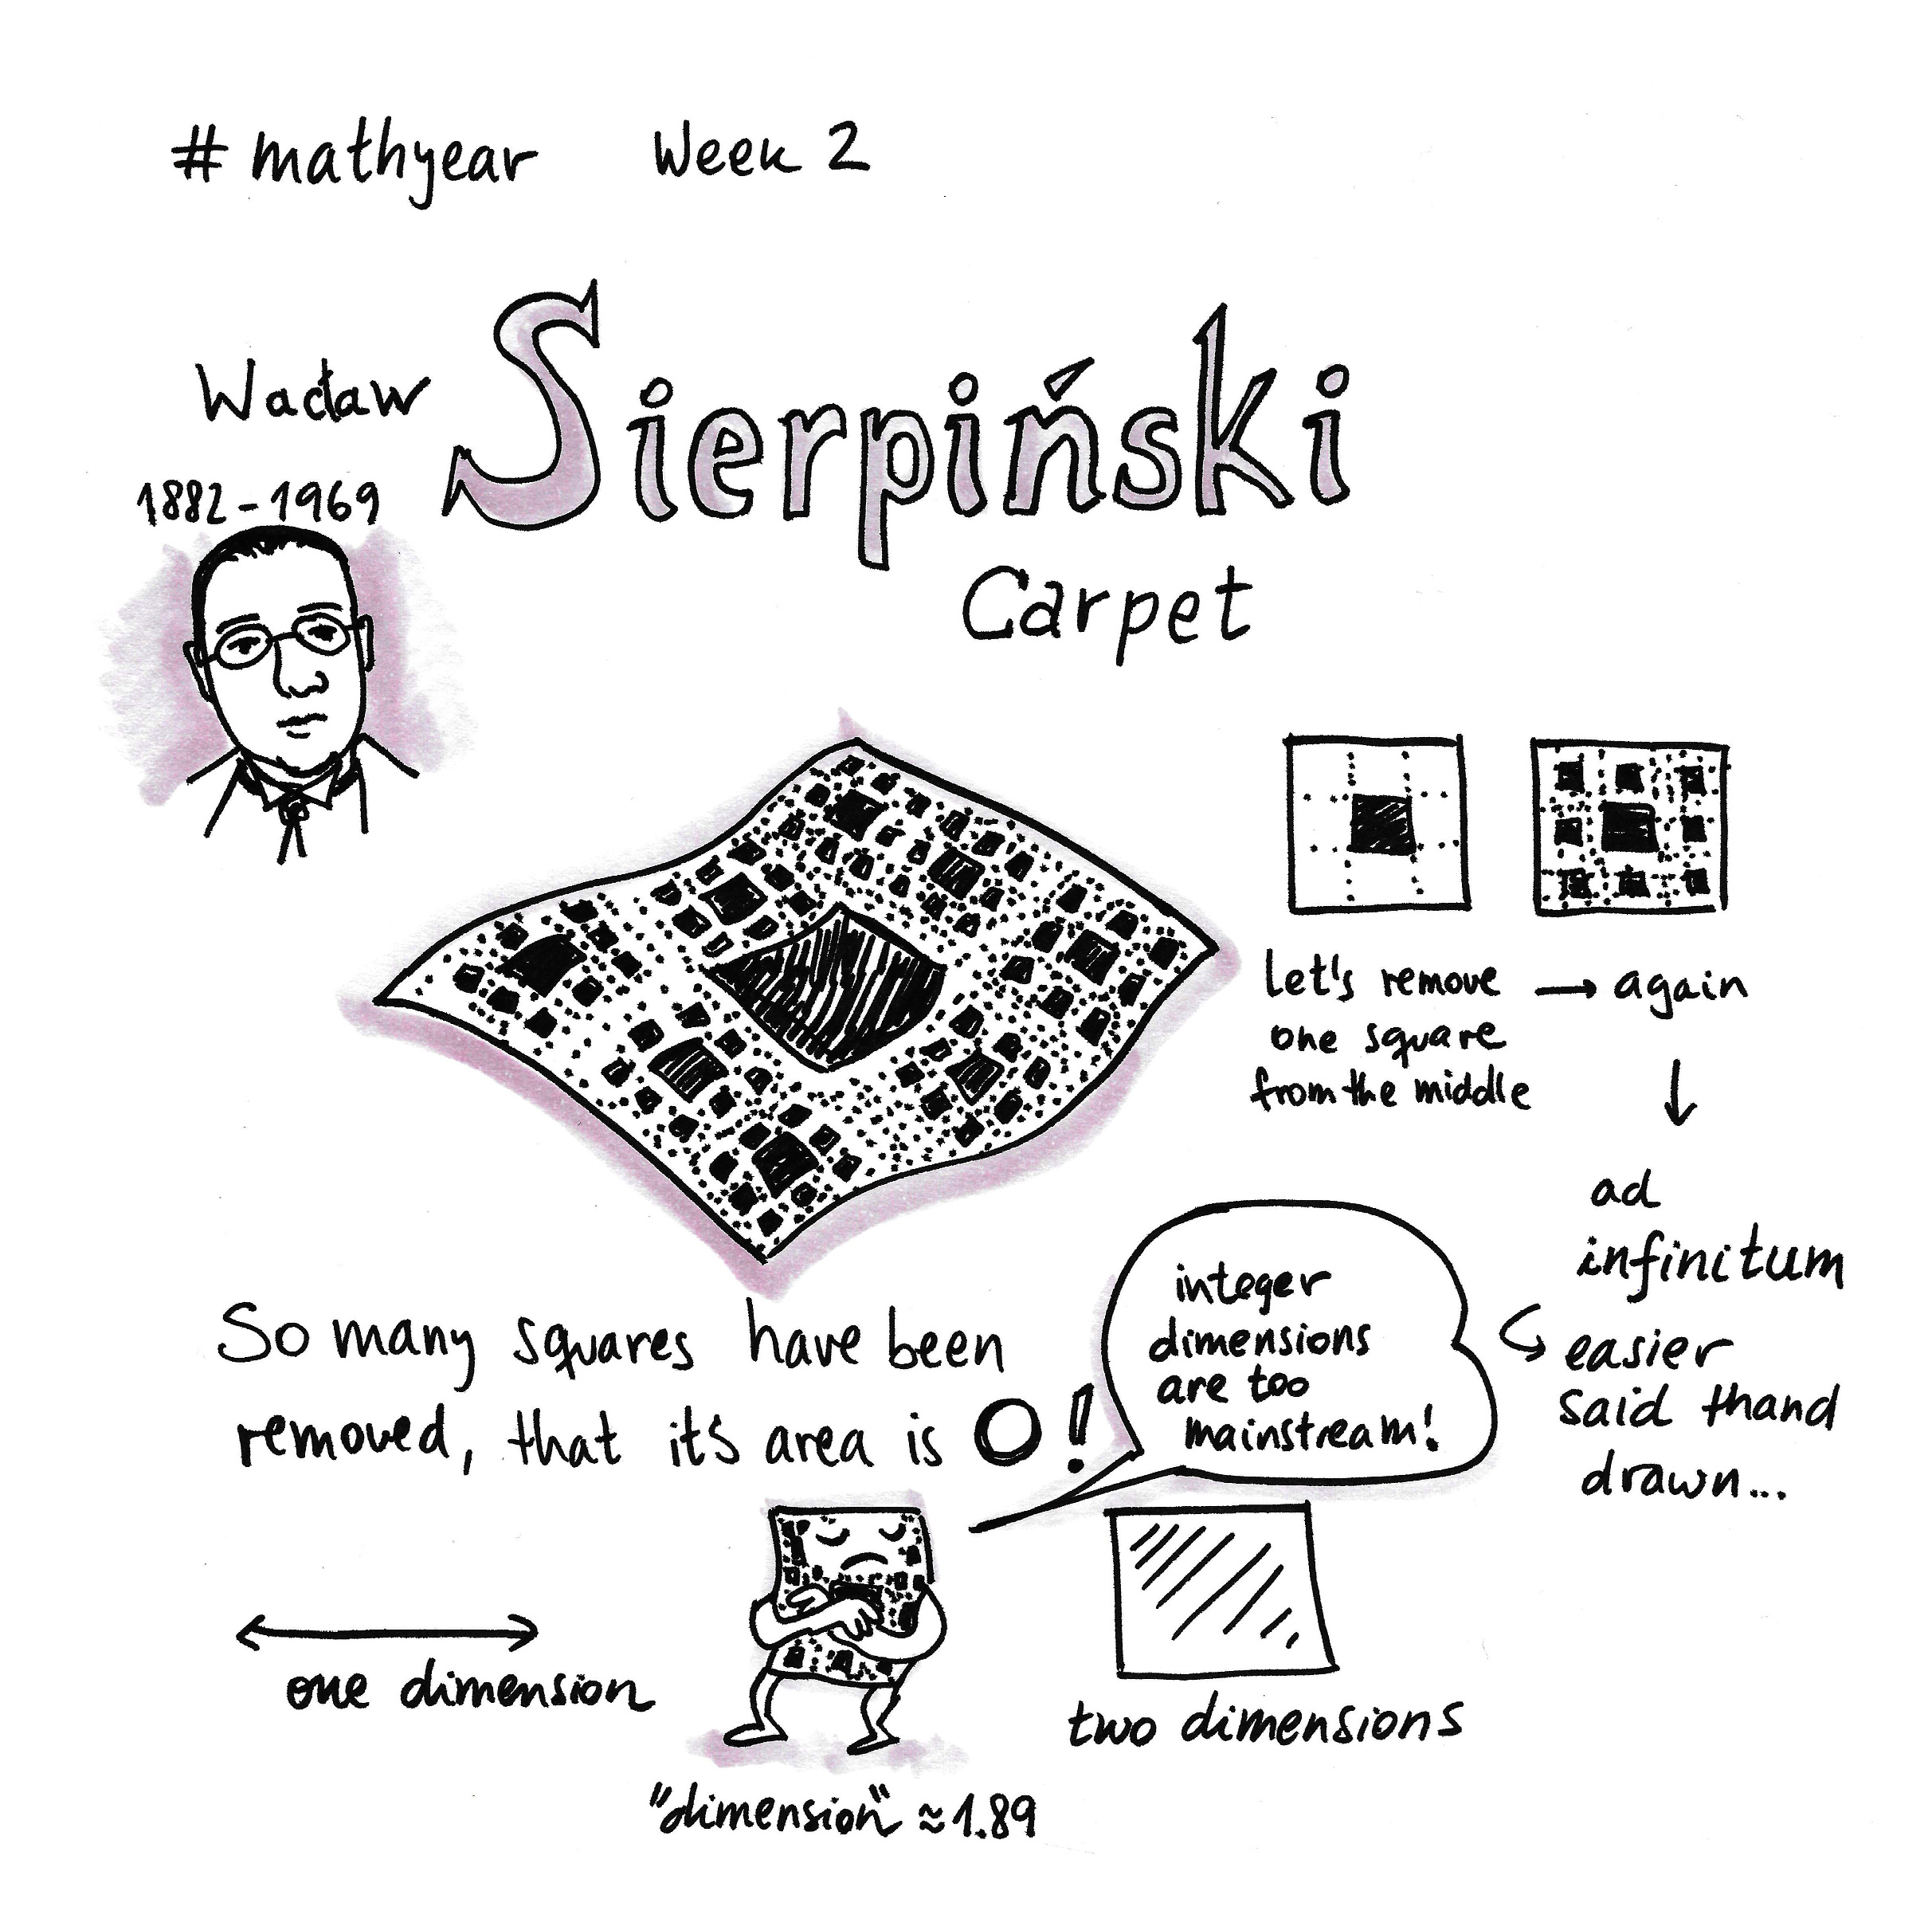 # mathyear Week 2
Wacław Sierpiński
Carpet
1882-1969
Let's remove → again
one square
from the middle
↓
ad
infinitum
easier
said thand
drawn...
So many squares have been
removed, that it's area is 0!
integer
dimensions
are too
mainstream!
one dimension
two dimensions
"dimension" ≈ 1.89